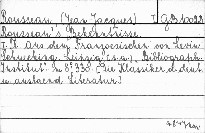 Rousseau, (Jean Jacques) T.
Rousseau's Bekenntnisse.
T. Aus dem Französischen von Levin
Schücking. Leipzig (s.a.) „Bibliograph.
Institut". In 8° 330 „Die Klassiker d. deut.
u. ausländ. Literatur"